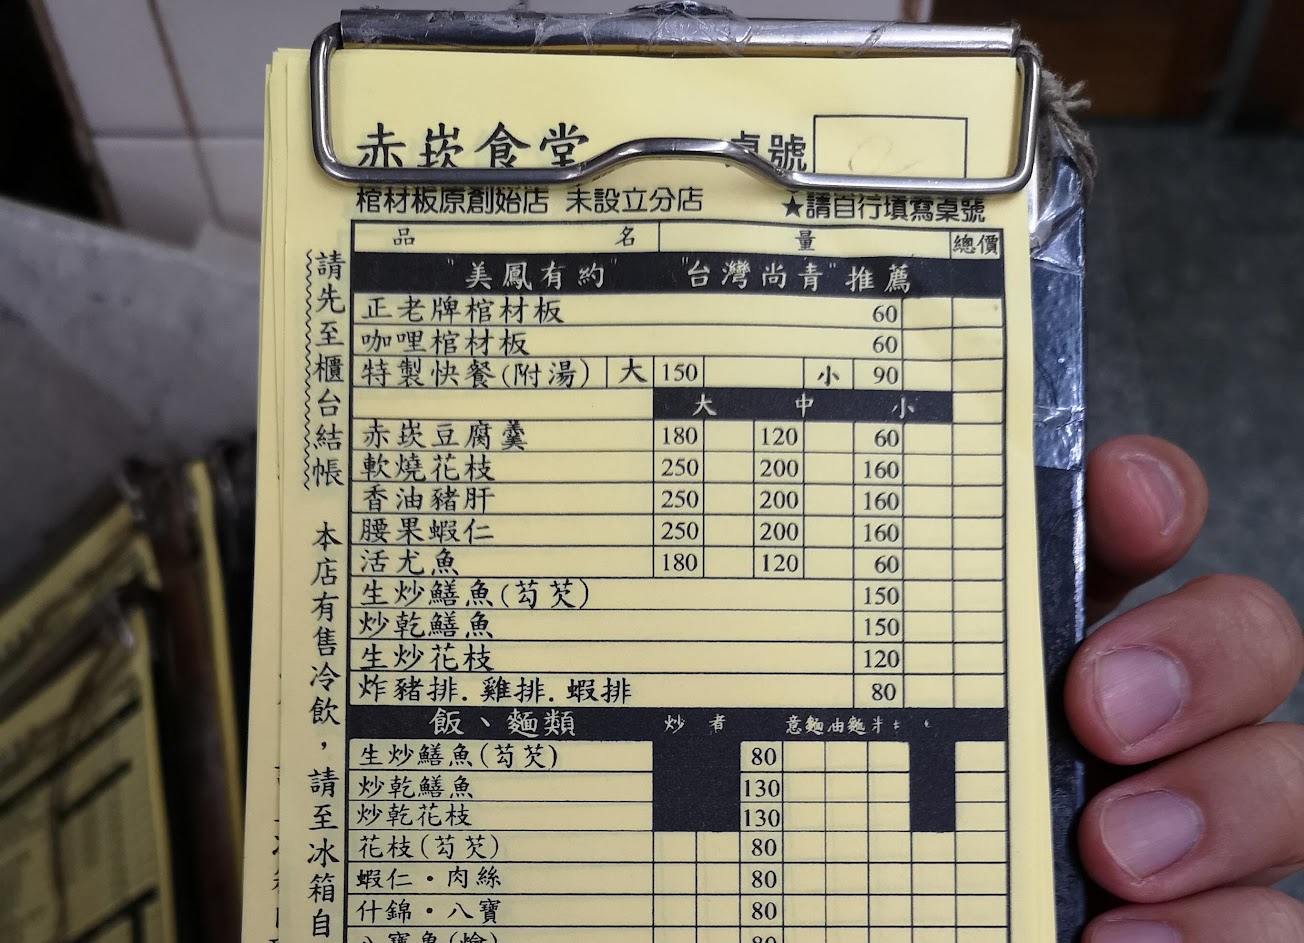 赤崁食堂 桌號
棺材板原創始店 未設立分店 ★請自行填寫桌號
品 名 量 總價
"美鳳有約" "台灣尚青"推薦
正老牌棺材板 60
咖哩棺材板 60
特製快餐(附湯) 大 150 小 90
大 中 小
赤崁豆腐羹 180 120 60
軟燒花枝 250 200 160
香油豬肝 250 200 160
腰果蝦仁 250 200 160
活尤魚 180 120 60
生炒鱔魚(芶芡) 150
炒乾鱔魚 150
生炒花枝 120
炸豬排.雞排.蝦排 80
飯、麵類 炒 者 意麵油麵米
生炒鱔魚(芶芡) 80
炒乾鱔魚 130
炒乾花枝 130
花枝(芶芡) 80
蝦仁·肉絲 80
什錦·八寶 80
請先至櫃台結帳
本店有售冷飲，請至冰箱自